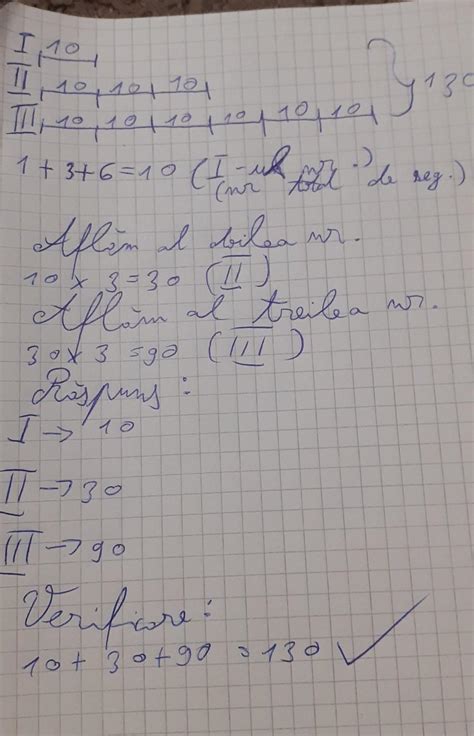 I 10
II 10 10 10
III 10 10 10 10 10 10 130
1+3+6=10 (I-ul nr.)
(nr total de seg.)
Aflăm al doilea nr.
10 x 3 = 30 (II)
Aflăm al treilea nr.
30 x 3 = 90 (III)
Răspuns:
I → 10
II → 30
III → 90
Verificare:
10 + 30 + 90 = 130 ✓